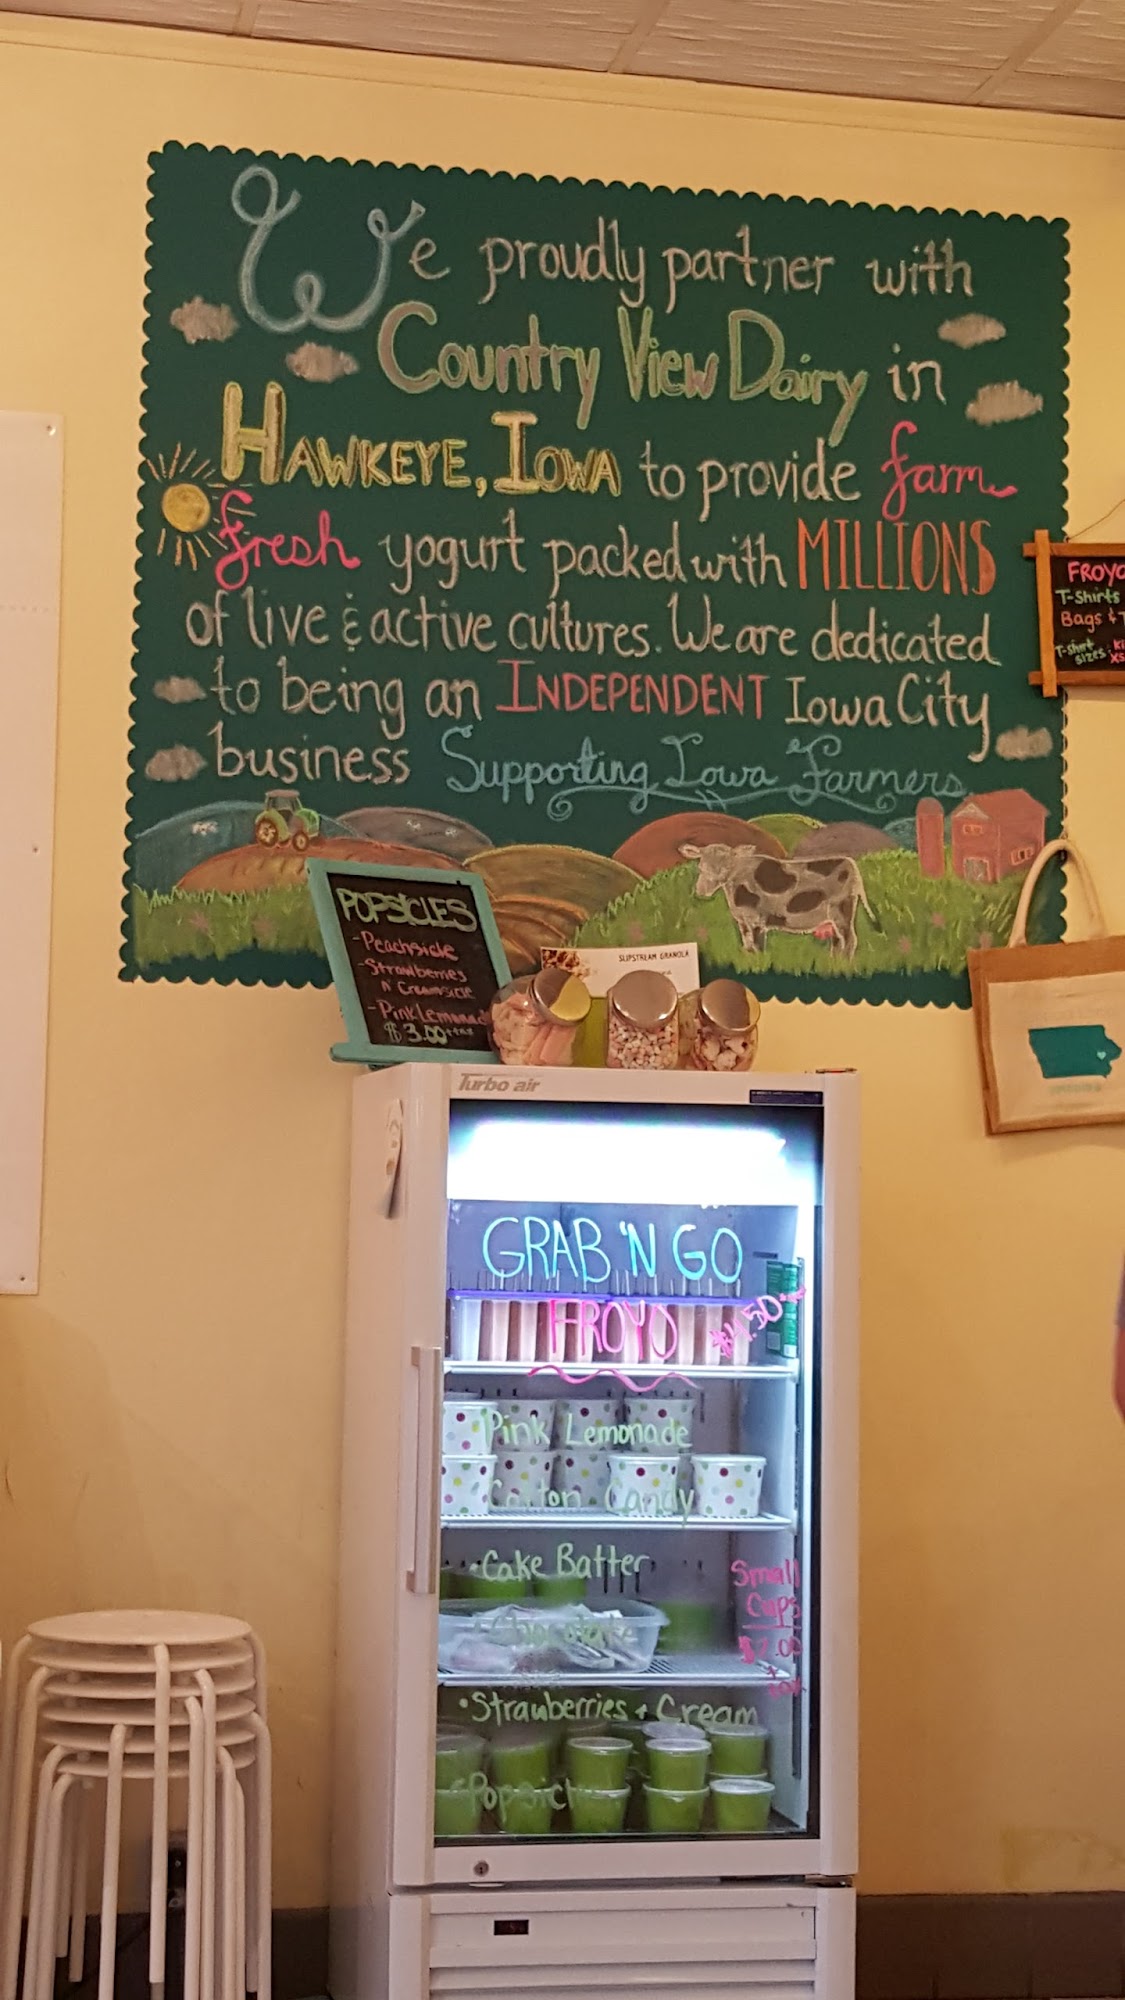 We proudly partner with
Country View Dairy in
HAWKEYE, IOWA to provide farm
fresh yogurt packed with MILLIONS
of live & active cultures. We are dedicated
to being an INDEPENDENT Iowa City
business Supporting Iowa Farmers.
FROYO
T-shirts
Bags &
T-shirt
sizes:
XS
POPSICLES
-Peachsicle
-Strawberries
n' Creamsicle
-Pink Lemonade
$3.00 +tax
SLIPSTREAM GRANOLA
Turbo air
GRAB 'N GO
FROYO $4.50
Pink Lemonade
Cotton Candy
•Cake Batter
Small
Cups
$2.00
+
tax
Chocolate
•Strawberries + Cream
Popsicle